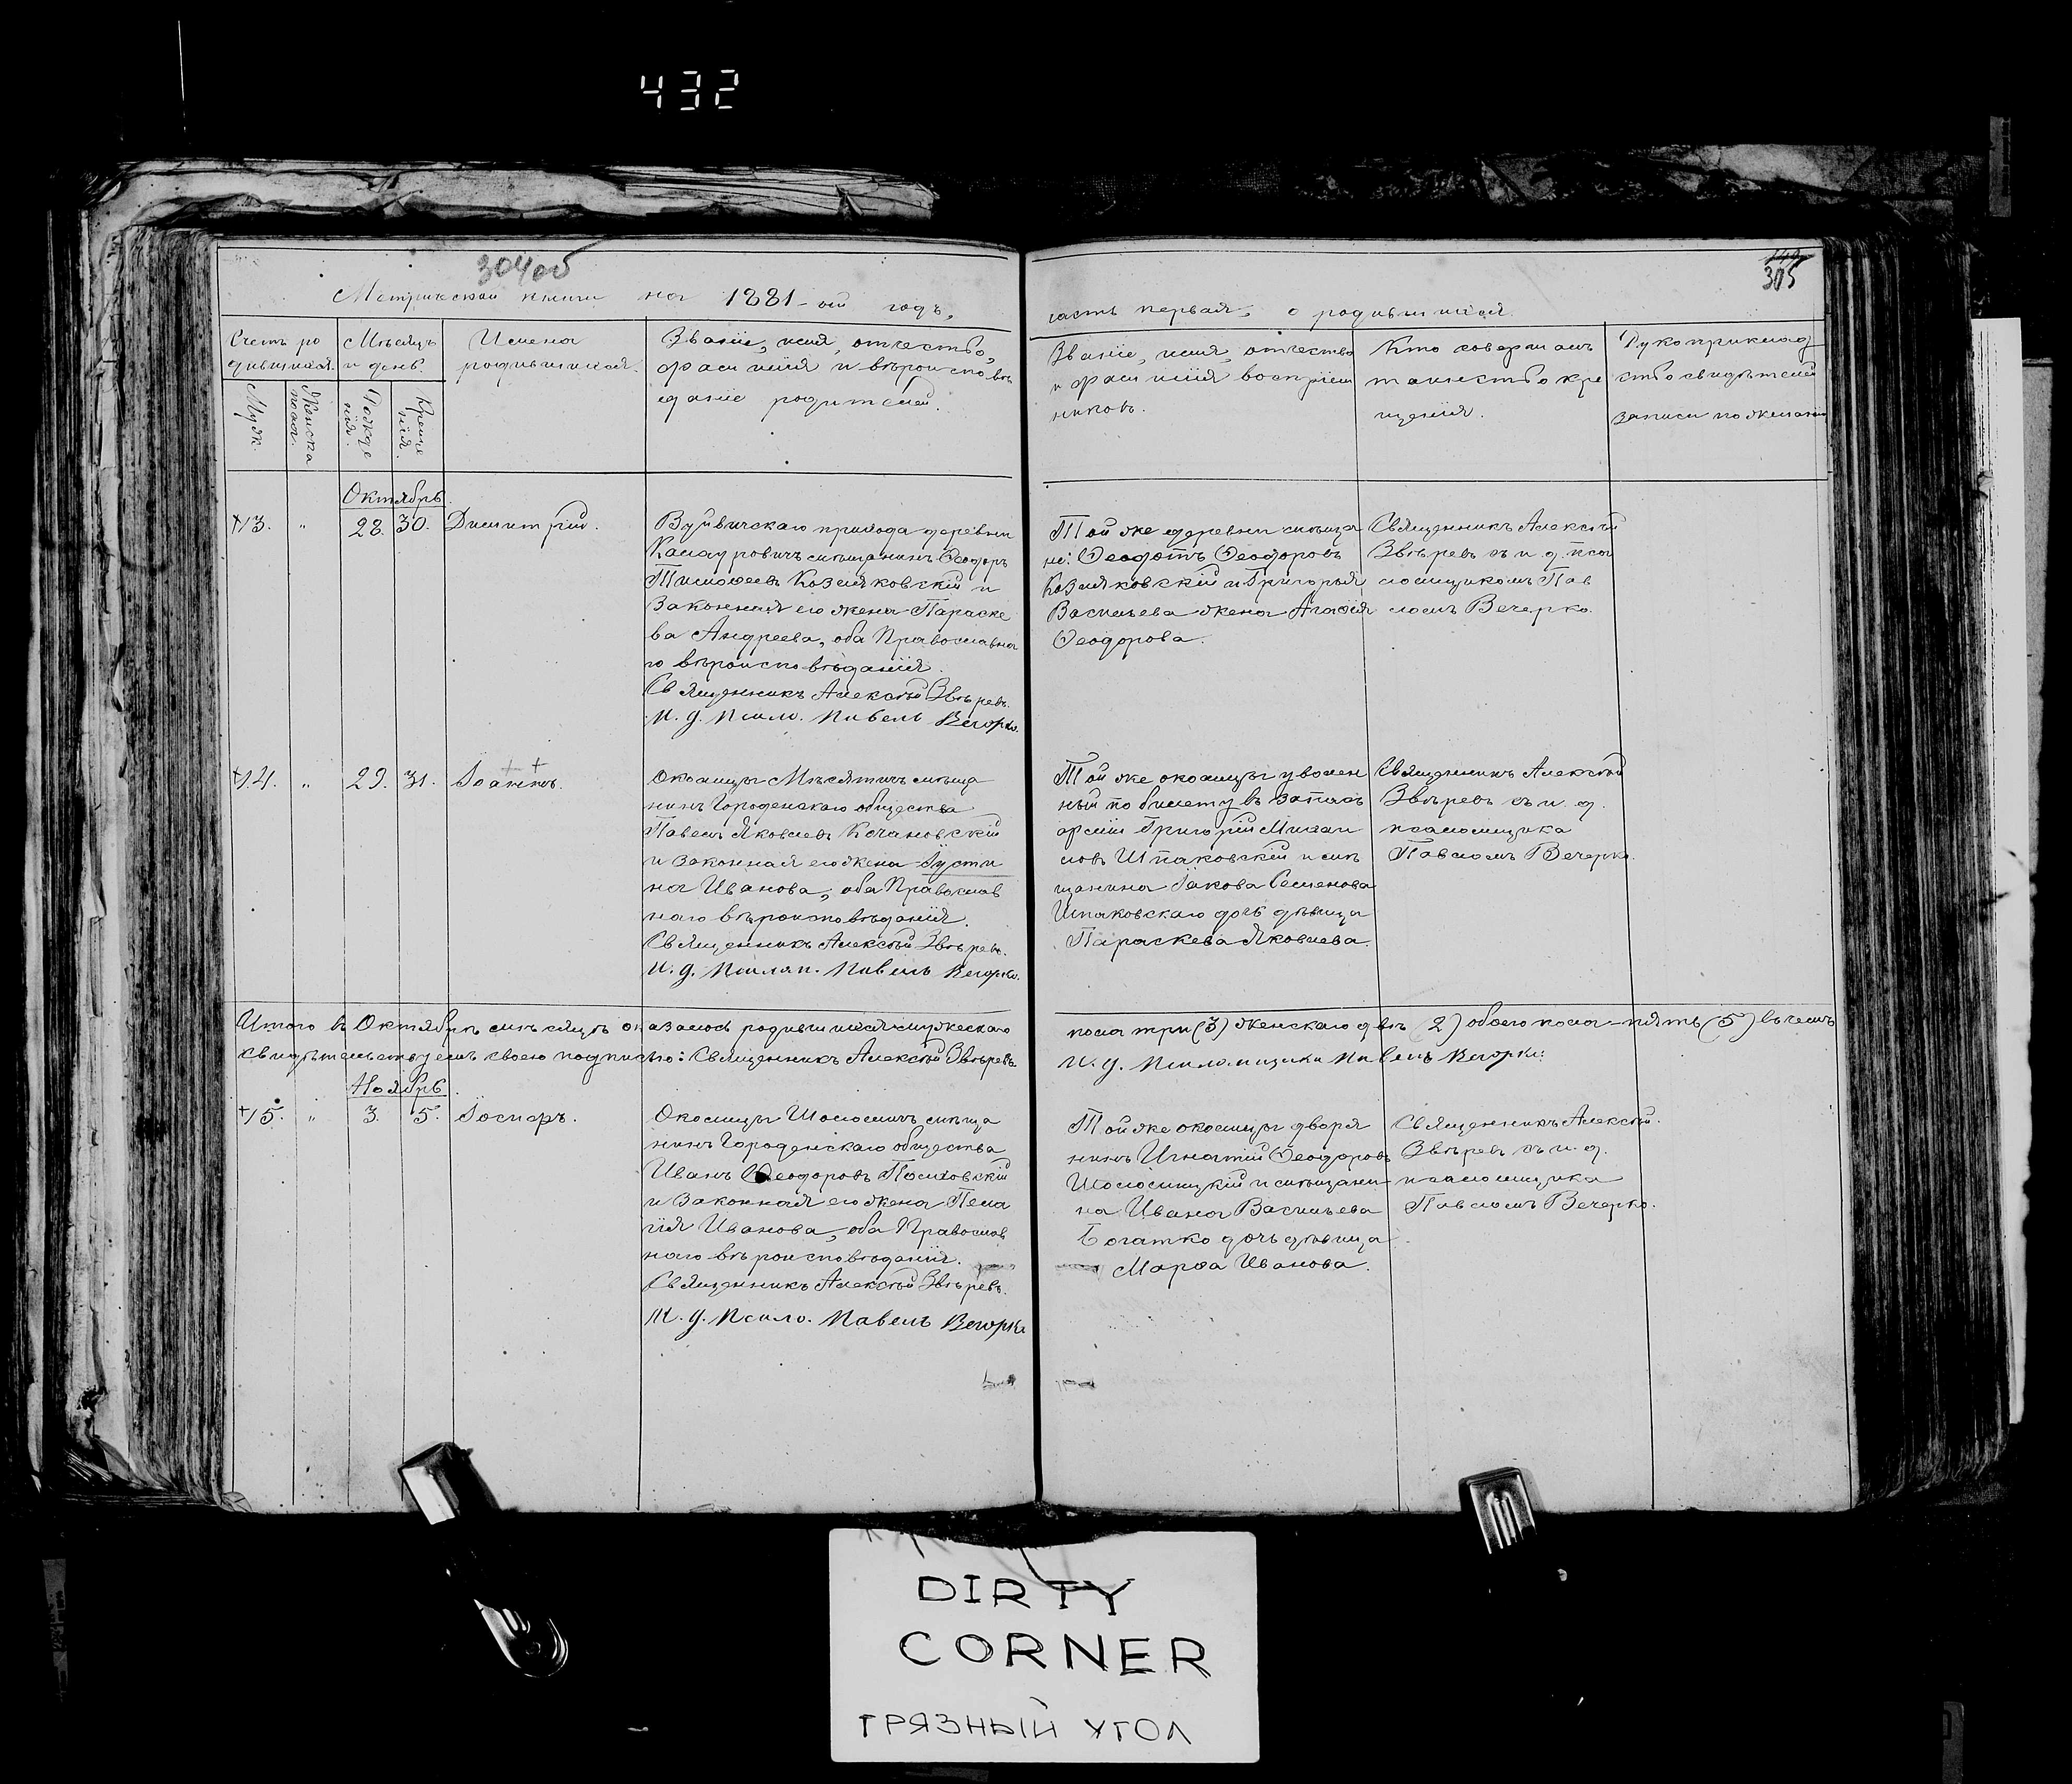 432
304об
305
Метрической книги на 1881-ой годъ,
часть первая, о родившихся.
Счетъ ро
дившихся.
Мѣсяцъ
и день.
Имена
родившихся.
Званіе, имя, отчество,
фамилія и вѣроисповѣ
даніе родителей.
Званіе, имя, отчество
и фамилія воспріем
никовъ.
Кто совершалъ
таинство кре
щенія.
Рукоприклад
ство свидѣтелей
записи по желанію
Муж.
Женска
пола.
Рожде
нія.
Креще
нія.
Октябрь.
13. " 28. 30. Димитрій.
прихода деревни
мѣщанинъ Ѳеодоръ
Тимоѳеевъ Козляковскій и
законная его жена Параске
ва Андреева, оба Православна
го вѣроисповѣданія.
Священникъ Алексѣй Звѣревъ.
И. д. Псало. Павелъ Вечорко.
Той же деревни мѣща
не: Ѳеодотъ Ѳеодоровъ
Козляковскій и Григорья
Васильева жена Агаѳія
Ѳеодорова.
Священникъ Алексѣй
Звѣревъ съ и. д. пса
ломщикомъ Пав
ломъ Вечерко.
14. " 29. 31. Іоаннъ.
Околицы Мѣсятичъ мѣща
нинъ Городенскаго общества
Павелъ Яковлевъ Кочановскій
и законная его жена Іусти
на Иванова, оба Православ
наго вѣроисповѣданія.
Священникъ Алексѣй Звѣревъ.
И. д. Павелъ Вечорко.
Той же околицы уволен
ный по билету въ запасъ
арміи Григорій Михаи
ловъ Шпаковскій и мѣ
щанина Іакова Семенова
Шпаковскаго дочь дѣвица
Параскева Яковлева.
Священникъ Алексѣй
Звѣревъ съ и. д.
псаломщика
Павломъ Вечерко.
Итого въ Октябрѣ мѣсяцѣ оказалось родившихся мужескаго
пола три (3) женскаго двѣ (2) обоего пола пять (5) въ чемъ
свидѣтельствуемъ своею подписью: Священникъ Алексѣй Звѣревъ.
И. д. Псаломщика Павелъ Вечорко.
Ноябрь.
15. " 3. 5. Іосифъ.
Околицы мѣща
нинъ Городенскаго общества
Иванъ Ѳеодоровъ
и законная его жена Пела
гія Иванова, оба Православ
наго вѣроисповѣданія.
Священникъ Алексѣй Звѣревъ.
И. д. Псало. Павелъ Вечорко
Той же околицы дворя
нинъ Игнатій Ѳеодоровъ
и мѣщани
на Ивана Васильева
Богатко дочь дѣвица
Марѳа Иванова.
Священникъ Алексѣй
Звѣревъ съ и. д.
псаломщика
Павломъ Вечерко.
DIRTY
CORNER
ГРЯЗНЫЙ УГОЛ